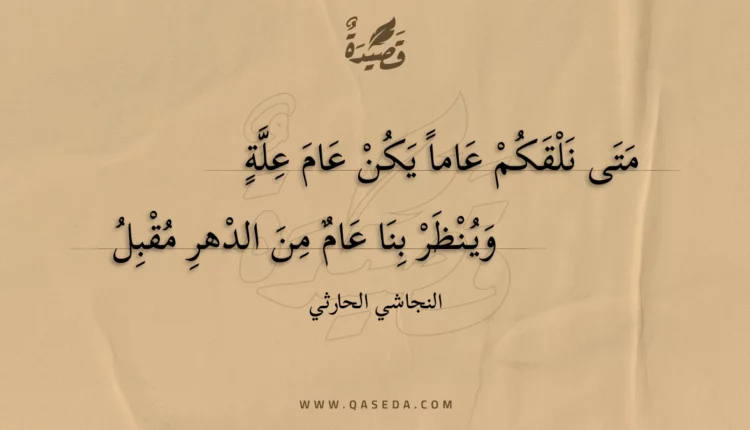 قَصِيدَةٌ
مَتَى نَلْقَكُمْ عَاماً يَكُنْ عَامَ عِلَّةٍ
وَيُنْظَرْ بِنَا عَامٌ مِنَ الدْهرِ مُقْبِلُ
النجاشي الحارثي
WWW.QASEDA.COM